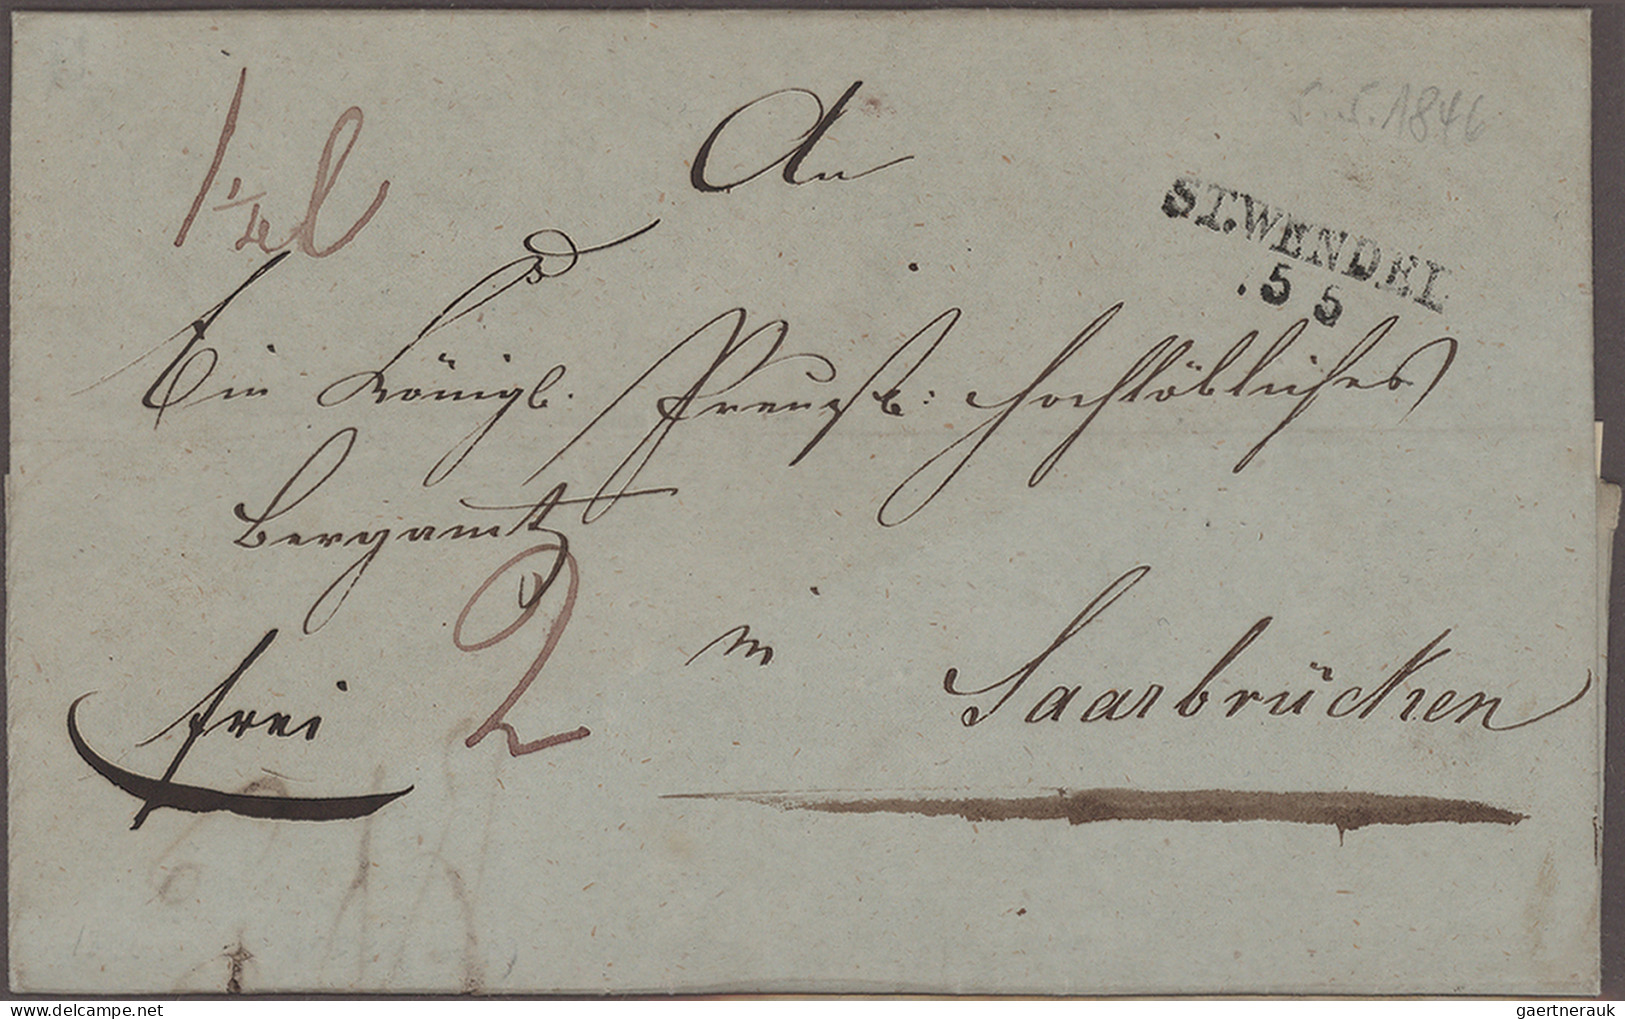 5.5.1846
1 1/4 l
An
ST.WENDEL
.5 5
Ein Königl. Preuß: Hochlöbliches
Bergamt
2
in
frei
Saarbrücken
gaertnerauk @ www.delcampe.net